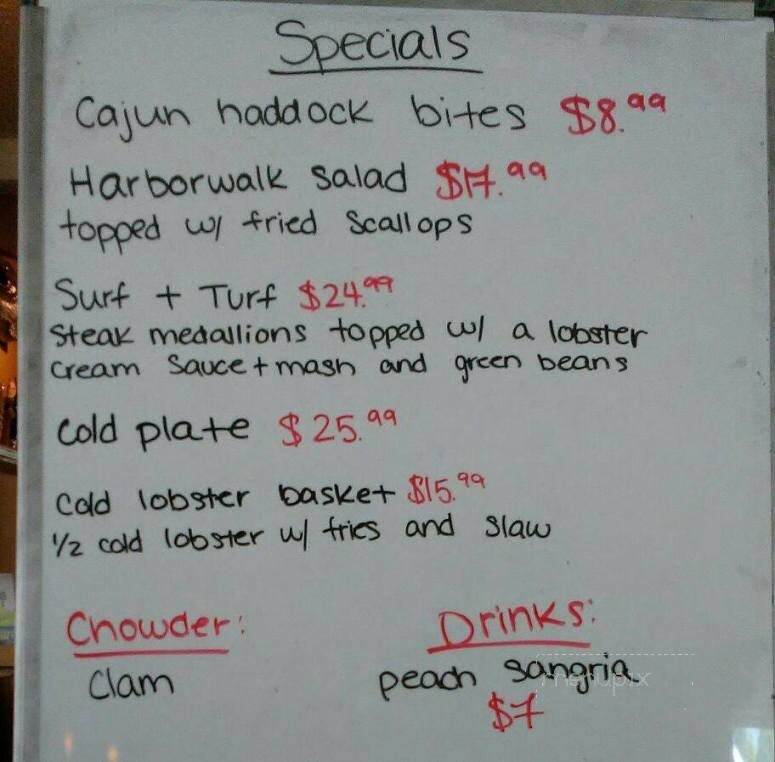 Specials
Cajun haddock bites $8.99
Harborwalk salad $17.99
topped w/ fried scallops
Surf + Turf $24.99
Steak medallions topped w/ a lobster
cream sauce + mash and green beans
Cold plate $25.99
Cold lobster basket $15.99
1/2 cold lobster w/ fries and slaw
Chowder:
Clam
Drinks:
peach sangria
$7
menupix